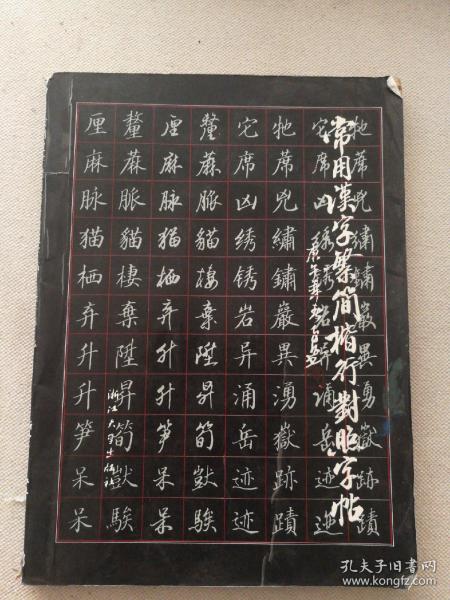 常用漢字繁简楷行對照字帖
厘釐厘釐它牠它牠
麻蔴麻蔴席蓆席蓆
脉脈脉脈凶兇凶兇
猫貓猫貓绣繡绣繡
栖棲栖棲锈鏽锈鏽
弃棄弃棄岩巖岩巖
升陞升陞异異异異
升昇升昇涌湧涌湧
笋筍笋筍岳嶽岳嶽
呆獃呆獃迹跡迹跡
呆騃呆騃迹蹟迹蹟
浙江大学出版社
孔夫子旧书网
www.kongfz.com